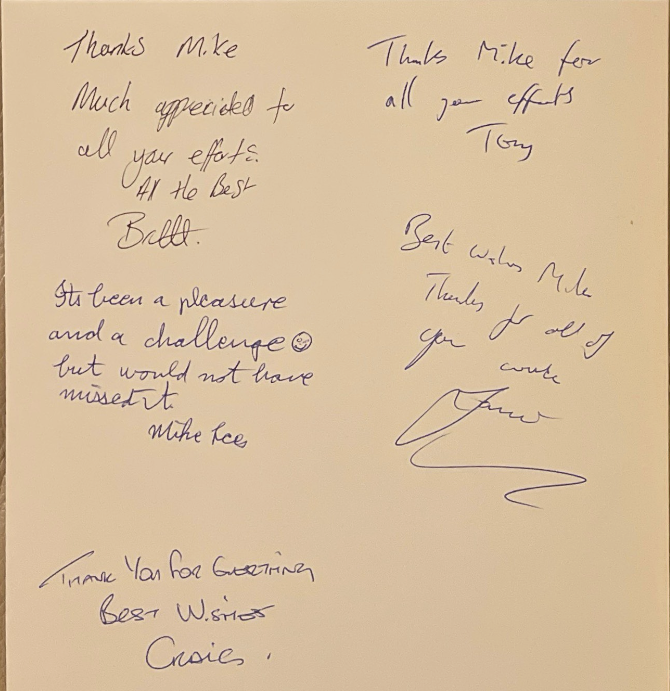 Thanks Mike
Much appreciated to
all your efforts.
All the Best
Its been a pleasure
and a challenge ☺
but would not have
missed it.
Mike Lees
Thank You For Everything
Best Wishes
Craig.
Thanks Mike for
all your efforts
Tony
Best wishes Mike
Thanks for all of
your work